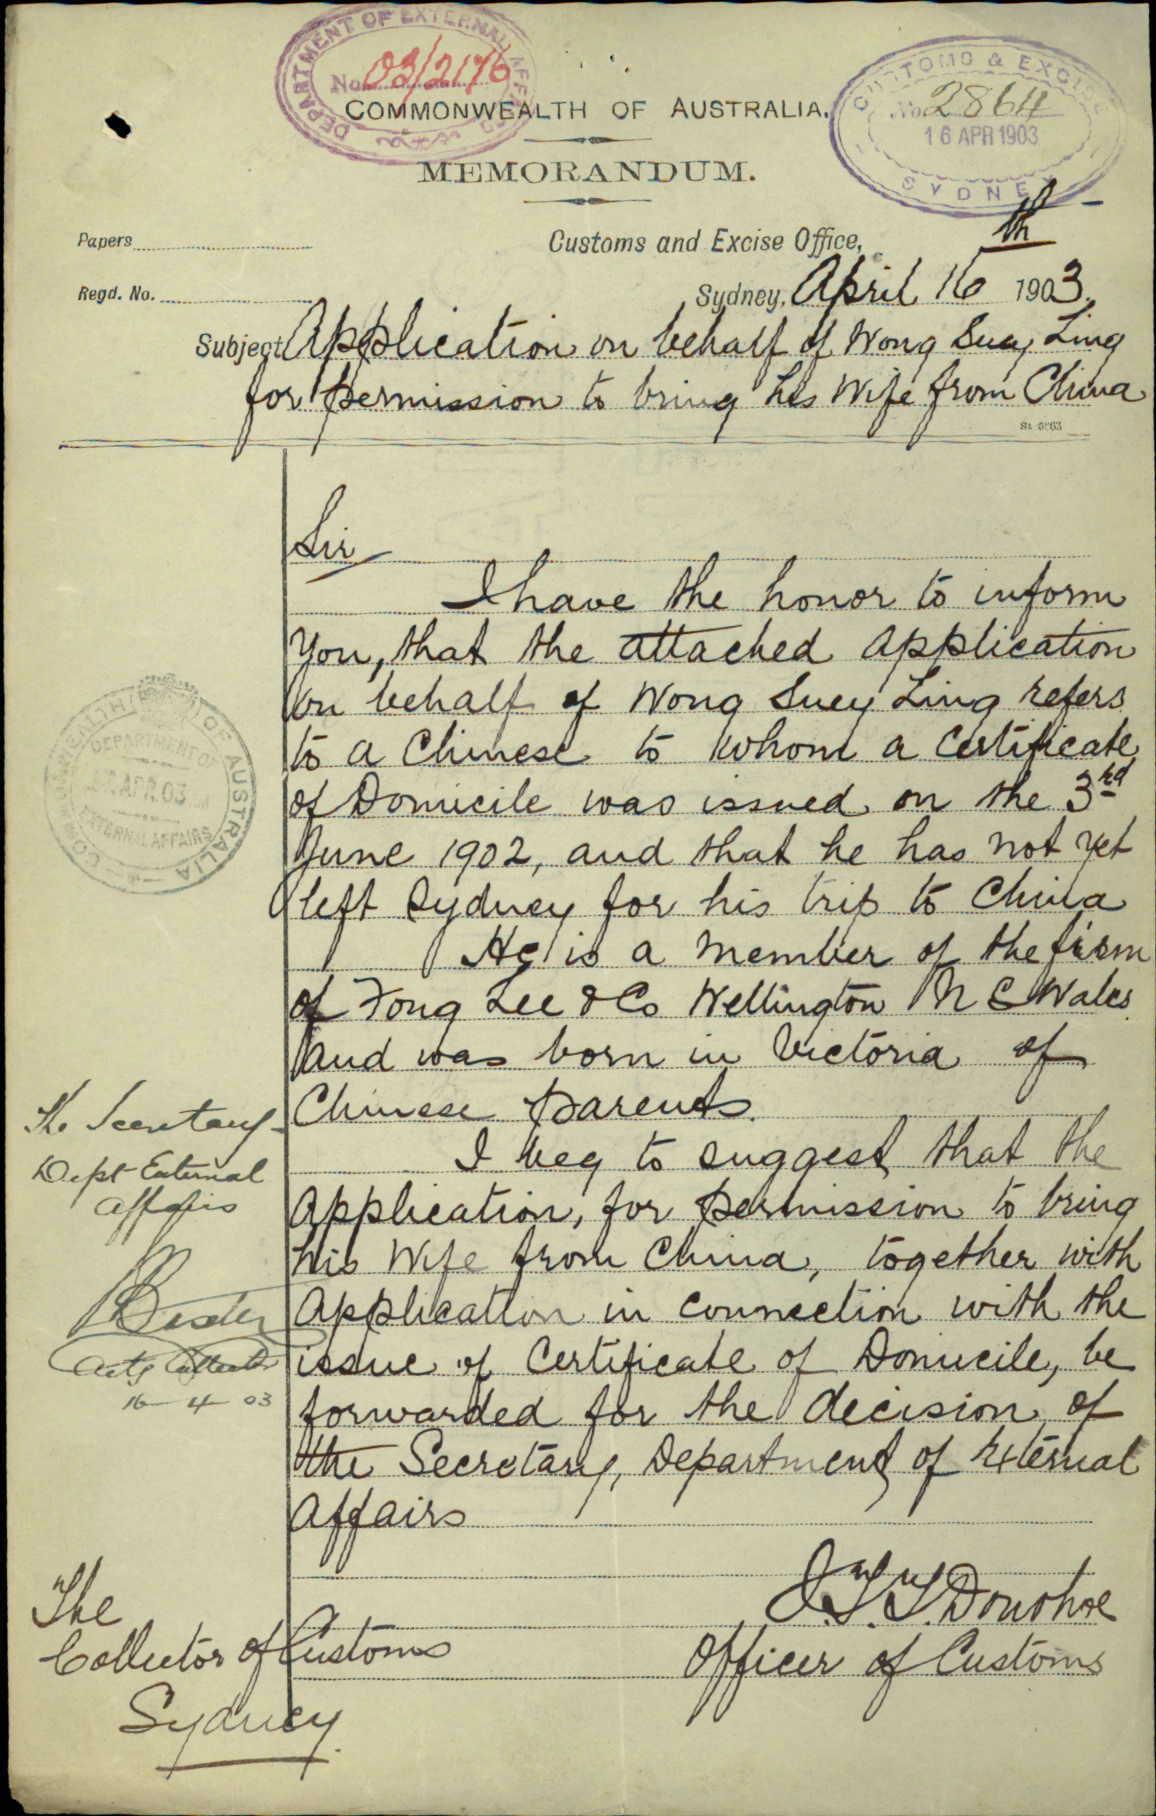 DEPARTMENT OF EXTERNAL AFFAIRS
No. 03/2176
COMMONWEALTH OF AUSTRALIA.
CUSTOMS & EXCISE
No. 2864
16 APR 1903
SYDNEY
MEMORANDUM.
Papers
Customs and Excise Office,
Regd. No.
Sydney, April 16th 1903.
Subject Application on behalf of Wong Suey Ling
for permission to bring his Wife from China
Sir
I have the honor to inform
you, that the attached application
on behalf of Wong Suey Ling refers
to a Chinese to whom a Certificate
of Domicile was issued on the 3rd
June 1902, and that he has not yet
left Sydney for his trip to China
He is a member of the firm
of Fong Lee & Co Wellington N S Wales
and was born in Victoria of
Chinese parents.
I beg to suggest that the
application, for permission to bring
his Wife from China, together with
application in connection with the
issue of Certificate of Domicile, be
forwarded for the decision of
the Secretary, Department of External
Affairs
J. T. T. Donohoe
Officer of Customs
The
Collector of Customs
Sydney
COMMONWEALTH OF AUSTRALIA
DEPARTMENT OF
APR. 03
EXTERNAL AFFAIRS
The Secretary
Dept External
Affairs
Actg Collector
16-4-03